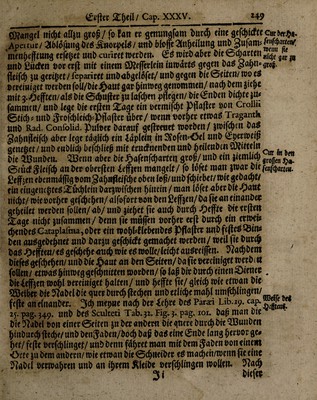 Erster Theil / Cap. XXXV. 249
Mangel nicht allzu groß / so kan er genungsam durch eine geschickte
Apertur / Ablösung des Knorpels / und blosse Antheilung und Zusam-
menhefftung ersetzet und curiret werden. Es wird aber die Scharten
und Lucken vor erst mit einem Messerlein inwärts gegen das Zahn-
fleisch zu geritzet / separiret und abgelöset / und gegen die Seiten / wo es
vereiniget werden soll / die Haut gar hinweg genommen / nach dem ziehe
mit 3. Hefften / als die Schuster zu laschen pflegen / die Enden dichte zu-
sammen / und lege die ersten Tage ein vermischt Pflaster von Crollii
Stich- und Froschleich-Pflaster über / wenn vorher etwas Traganth
und Rad. Consolid. Pulver darauf gestreuet worden / zwischen das
Zahnfleisch aber lege täglich ein Läplein in Rosen-Oel und Eyerweiß
genetzet / und endlich beschließ mit trucknenden und heilenden Mitteln
die Wunden. Wenn aber die Hasenscharten groß / und ein ziemlich
Stück Fleisch an der obersten Leffzen mangelt / so löser man zwar die
Leffzen ebenmässig vom Zahnfleische oben loß und schricket / wie gedacht
ein eingenetztes Tüchlein darzwischen hinein / man löser aber die Haut
nicht / wie vorher geschehen / alsofort von den Leffzen / da sie an einander
geheilet werden sollen / ab / und ziehet sie auch durch Heffte die ersten
Tage nicht zusammen / denn sie müssen vorher erst durch ein erwei-
chendes Cataplasma, oder ein wohlklebendes Pflaster und festes Bin-
den ausgedehnet und darzu geschickt gemachet werden / weil sie durch
das Hefften / es geschehe auch wie es wolle / leicht ausreissen. Nachdem
dieses geschehen / und die Haut an den Seiten / da sie vereiniget werden
sollen / etwas hinweg geschnitten worden / so laß dir durch einen Diener
die Leffzen wohl vereiniget halten / und heffte sie / gleich wie etwan die
Weiber die Nadel die quere durch stechen und etliche mahl umschlingen /
feste an einander. Ich meyne nach der Lehre des Paræi Lib. 19. cap.
25. pag. 349. und des Sculteti Tab. 32. Fig. 3. pag. 101. daß man die
die Nadel von einer Seiten zu der andern die quere durch die Wunden
hindurch steche / und den Faden / doch daß das eine Ende lang hervor ge-
het / feste verschlinget / und denn fähret man mit dem Faden von einem
Orte zu dem andern / wie etwan die Schneider es machen / wenn sie eine
Nadel verwahren und an ihrem Kleide verschlingen wollen. Nach
Ii dieser
Cur der Ha-
senscharten /
wenn sie
nicht gar zu
groß.
Cur in den
großen Ha-
senscharten.
Weise des
Hefftens.